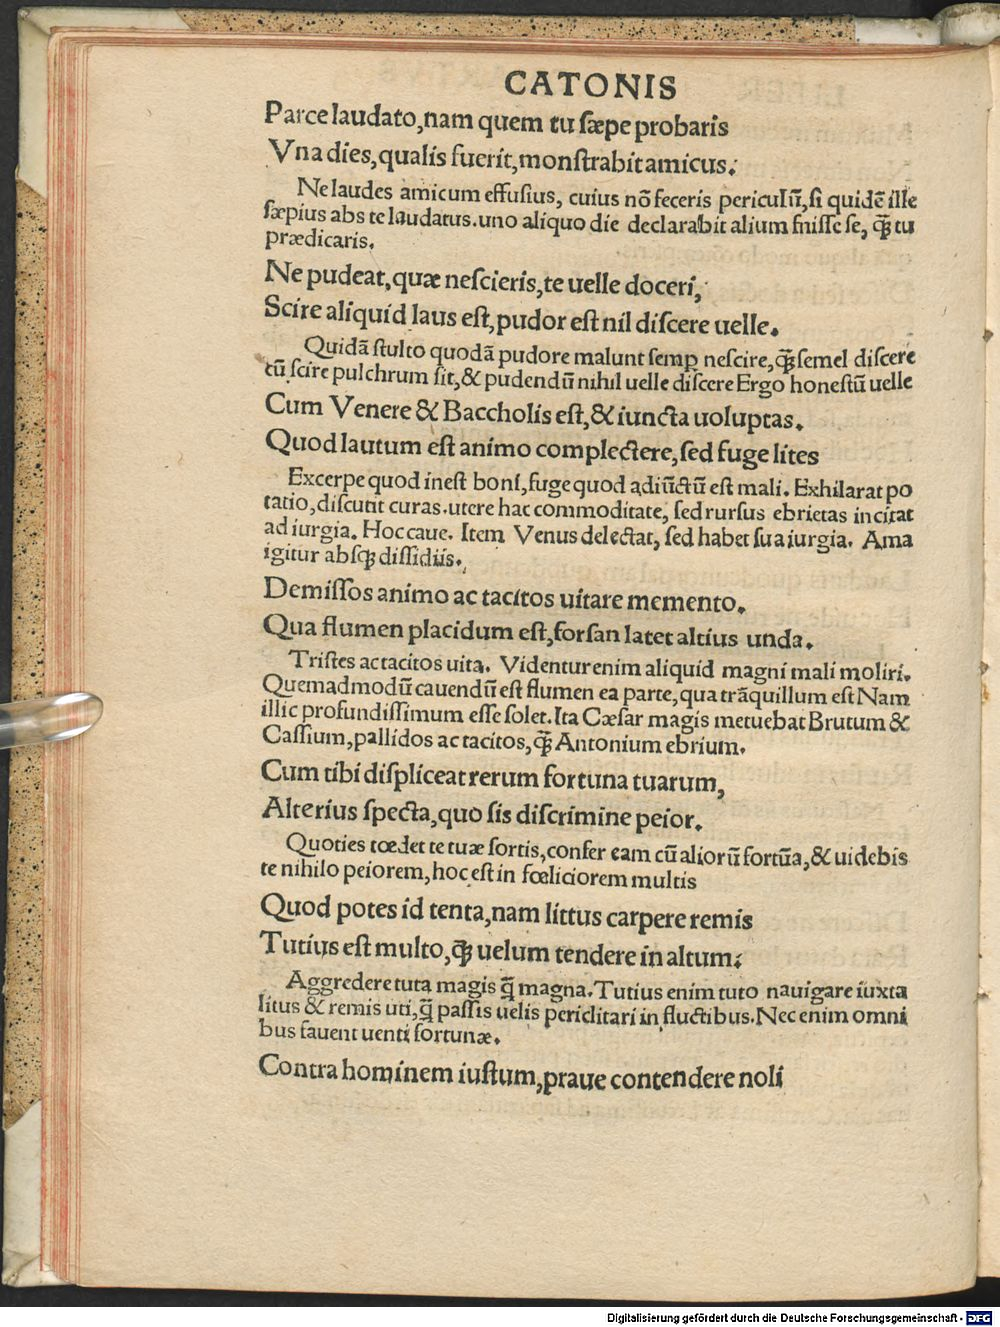 CATONIS
Parce laudato,nam quem tu sæpe probaris
Vna dies,qualis fuerit,monstrabit amicus:
Ne laudes amicum effusius, cuius nõ feceris periculũ,si quidẽ ille
sæpius abs te laudatus.uno aliquo die declarabit alium fuisse se, q̃ tu
prædicaris.
Ne pudeat,quæ nescieris,te uelle doceri,
Scire aliquid laus est,pudor est nil discere uelle.
Quidã stulto quodã pudore malunt semp nescire,q̃ semel discere
cũ scire pulchrum sit,& pudendũ nihil uelle discere Ergo honestũ uelle
Cum Venere & Baccho lis est,& iuncta uoluptas.
Quod lautum est animo complectere,sed fuge lites
Excerpe quod inest boni,fuge quod adiũctũ est mali. Exhilarat po
tatio,discutit curas.utere hac commoditate, sed rursus ebrietas incitat
ad iurgia. Hoc caue. Item Venus delectat, sed habet sua iurgia. Ama
igitur absq; dissidiis.
Demissos animo ac tacitos uitare memento.
Qua flumen placidum est,forsan latet altius unda.
Tristes ac tacitos uita. Videntur enim aliquid magni mali moliri.
Quemadmodũ cauendũ est flumen ea parte, qua trãquillum est Nam
illic profundissimum esse solet.Ita Cæsar magis metuebat Brutum &
Cassium,pallidos ac tacitos,q̃ Antonium ebrium.
Cum tibi displiceat rerum fortuna tuarum,
Alterius specta,quo sis discrimine peior.
Quoties tœdet te tuæ sortis,confer eam cũ aliorũ fortũa,& uidebis
te nihilo peiorem,hoc est in fœliciorem multis
Quod potes id tenta,nam littus carpere remis
Tutius est multo,q̃ uelum tendere in altum:
Aggredere tuta magis q̃ magna.Tutius enim tuto nauigare iuxta
litus & remis uti,q̃ passis uelis periclitari in fluctibus.Nec enim omni
bus fauent uenti fortunæ.
Contra hominem iustum,praue contendere noli
Digitalisierung gefördert durch die Deutsche Forschungsgemeinschaft - DFG